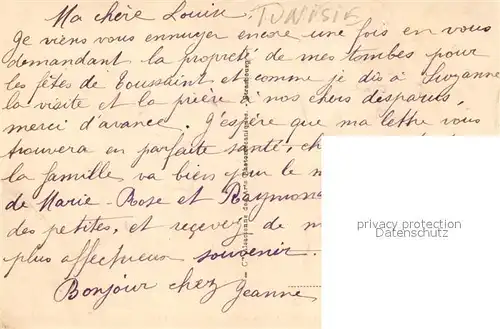 Ma chère Louise, TUNISIE
Je viens vous ennuyer encore une fois en vous
demandant la propreté de mes tombes pour
les fêtes de Toussaint et comme je dis à Suzanne
la visite et la prière à nos chers disparus,
merci d'avance. J'espère que ma lettre vous
trouvera en parfaite santé, ch
la famille va bien
de Marie-Rose et Raymon
des petites, et recevez de m
plus affectueux souvenir.
Bonjour chez Jeanne
privacy protection
Datenschutz